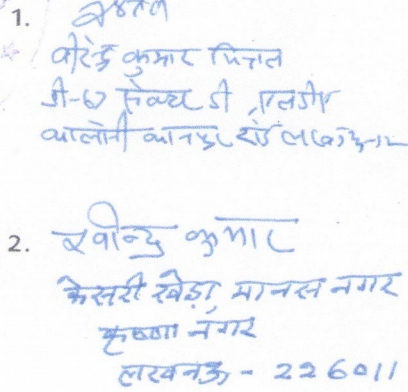 1.
वीरेन्द्र कुमार मित्तल
डी-67 सेक्टर डी, एलडीए
कालोनी कानपुर रोड लखनऊ
2. रवीन्द्र कुमार
केसरी खेड़ा, मानस नगर
कृष्णा नगर
लखनऊ - 226011